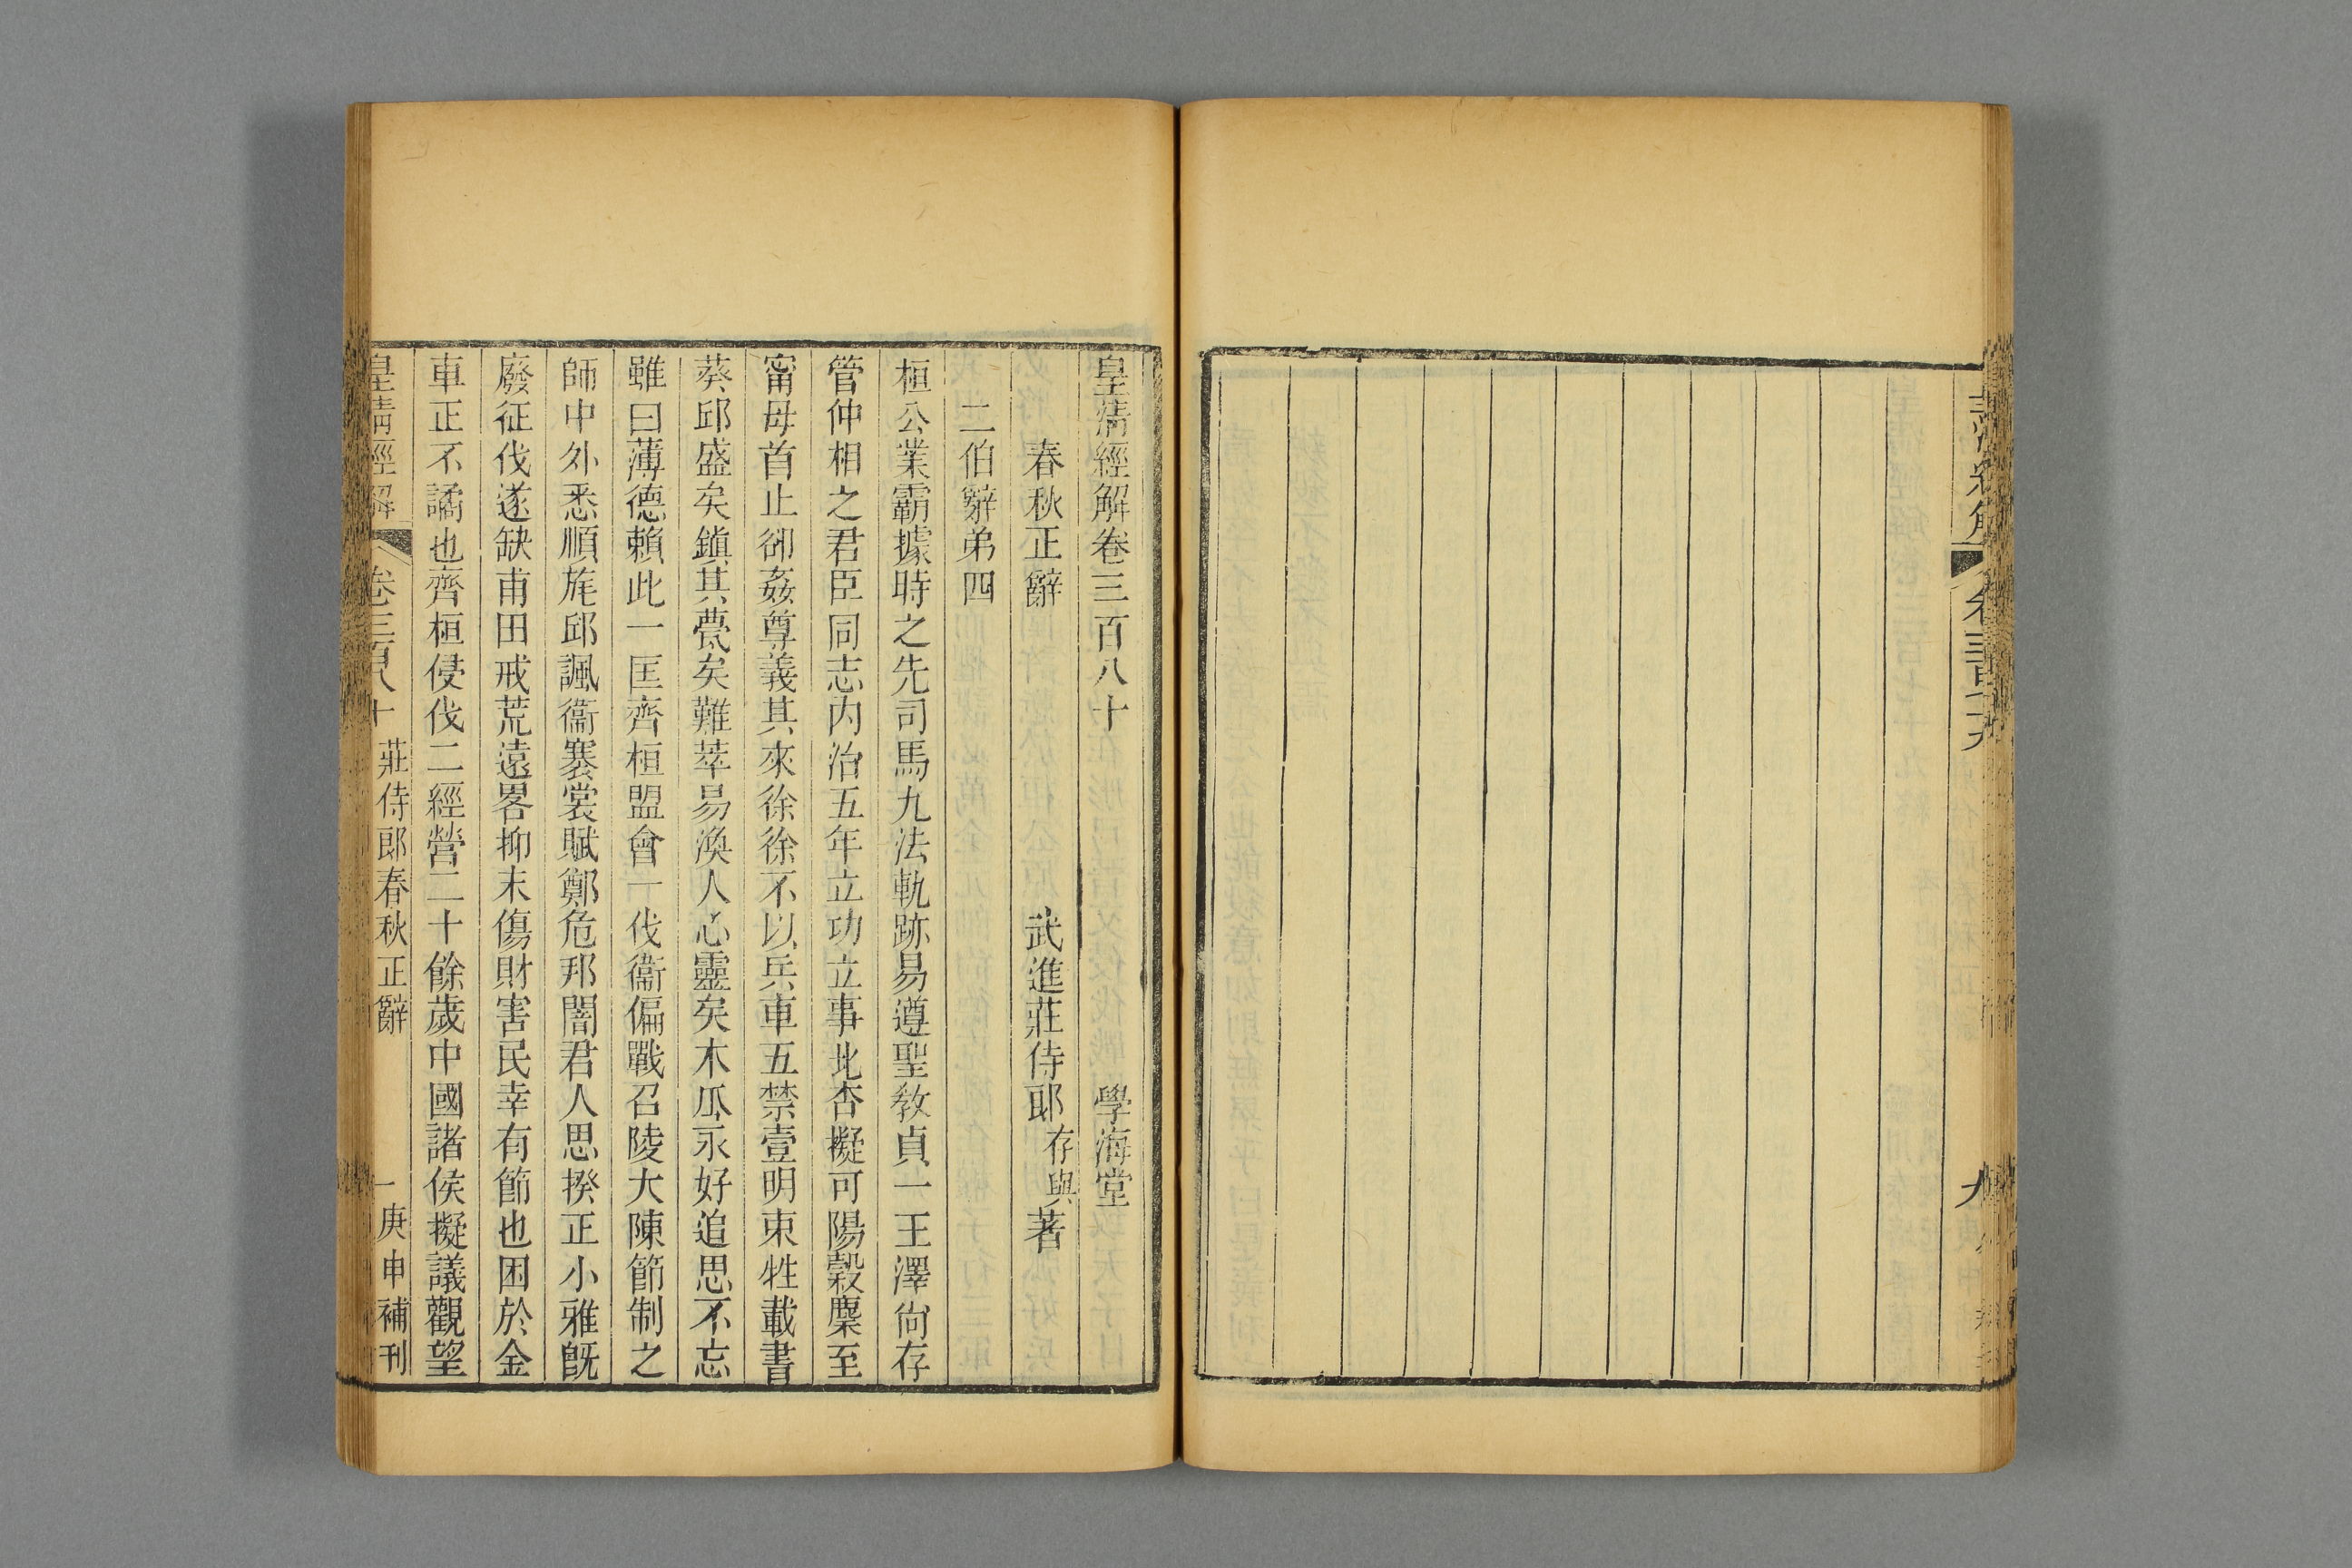 皇清經解卷三百八十　學海堂
春秋正辭　武進莊侍郎存與著
二伯辭弟四
桓公業霸據時之先司馬九法軌跡易遵聖敎貞一王澤尙存
管仲相之君臣同志内治五年立功立事北杏擬可陽榖麋至
甯毋首止卻姦尊義其來徐徐不以兵車五禁壹明束牲載書
葵邱盛矣鎭其甍矣難萃易渙人心靈矣木瓜永好追思不忘
雖曰薄德賴此一匡齊桓盟會一伐衞偏戰召陵大陳節制之
師中外悉順旄邱諷衞褰裳賦鄭危邦闇君人思揆正小雅旣
廢征伐遂缺甫田戒荒遠畧抑末傷財害民幸有節也困於金
車正不譎也齊桓侵伐二經營二十餘歲中國諸侯擬議觀望
皇清經解　卷三百八十　莊侍郎春秋正辭　一　庚申補刊